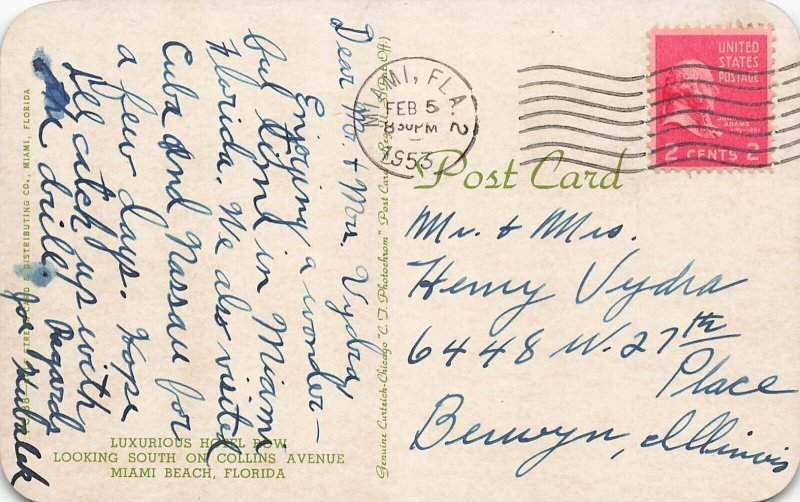 Dear Mr. & Mrs. Vydra
Enjoying a wonder-
ful time in Miami
Florida. We also visited
Cuba and Nassau for
a few days. Hope
I'll catch up with
the drill. Regards
Joe
MIAMI, FLA. 2
FEB 5
8 30 PM
1953
UNITED
STATES
POSTAGE
JOHN
ADAMS
2 CENTS 2
Post Card
Mr. & Mrs.
Henry Vydra
6448 W. 27th
Place
Berwyn, Illinois
Genuine Curteich-Chicago "C. T. Photochrom" Post Card
DISTRIBUTING CO., MIAMI, FLORIDA
LUXURIOUS HOTEL ROW
LOOKING SOUTH ON COLLINS AVENUE
MIAMI BEACH, FLORIDA